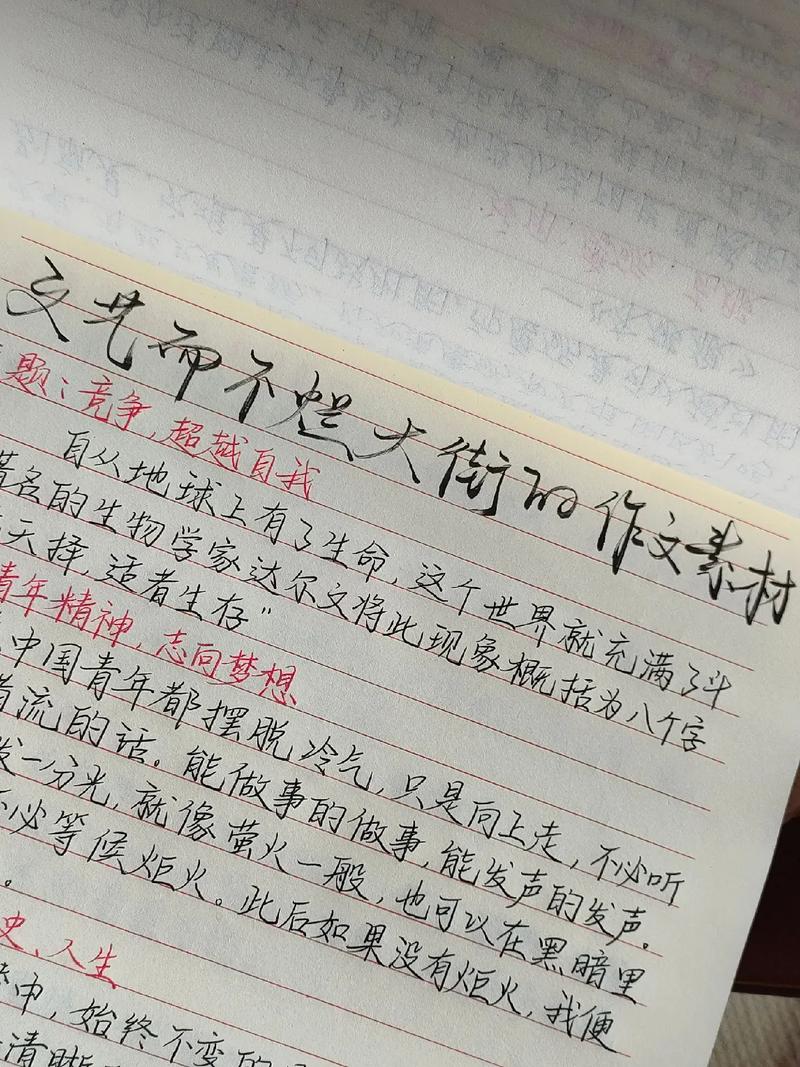 文艺而不烂大街的作文素材
题：竞争，超越自我
自从地球上有了生命，这个世界就充满了斗
著名的生物学家达尔文将此现象概括为八个字
天择，适者生存”
青年精神，志向梦想
中国青年都摆脱冷气，只是向上走，不必听
流的话。能做事的做事，能发声的发声。
发一分光，就像萤火一般，也可以在黑暗里
不必等候炬火。此后如果没有炬火，我便
。
史、人生
中，始终不变的
清晰